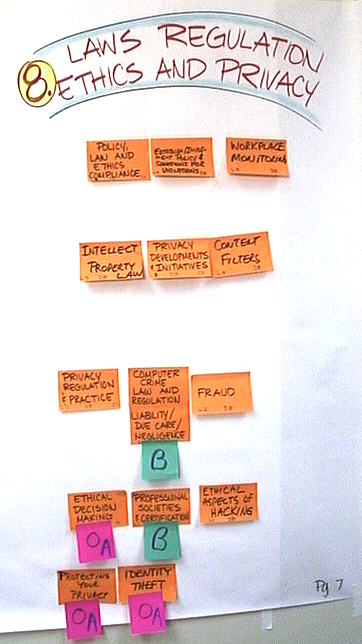 8. LAWS REGULATION
ETHICS AND PRIVACY
POLICY,
LAW AND
ETHICS
COMPLIANCE
POLICY &
VIOLATIONS
WORKPLACE
MONITORING
INTELLECT.
PROPERTY
LAW
PRIVACY
DEVELOPMENTS
& INITIATIVES
CONTENT
FILTERS
PRIVACY
REGULATION
& PRACTICE
COMPUTER
CRIME
LAW AND
REGULATION
LIABILITY/
DUE CARE/
NEGLIGENCE
FRAUD
B
ETHICAL
DECISION
MAKING
OA
PROFESSIONAL
SOCIETIES
& CERTIFICATION
B
ETHICAL
ASPECTS OF
HACKING
PROTECTING
YOUR
PRIVACY
OA
IDENTITY
THEFT
OA
Pg 7